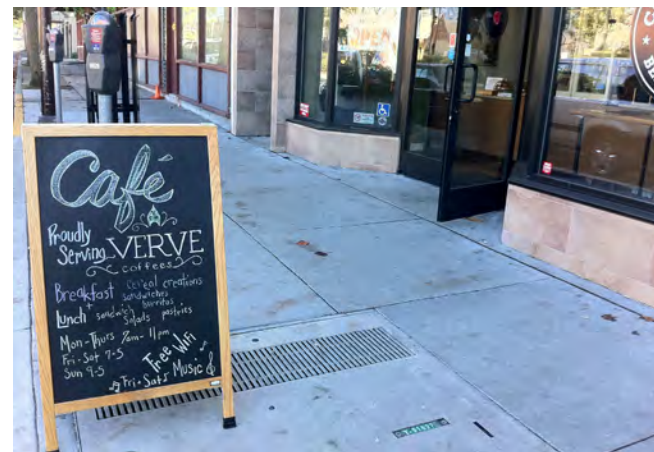 Café
Proudly
Serving VERVE
coffees
Breakfast cereal creations
sandwiches
burritos
Lunch + sandwich
Salads pastries
Mon-Thurs 7am-11pm
Fri-Sat 7-5
Sun 9-5
Free Wifi
Fri-Sat Music
OPEN